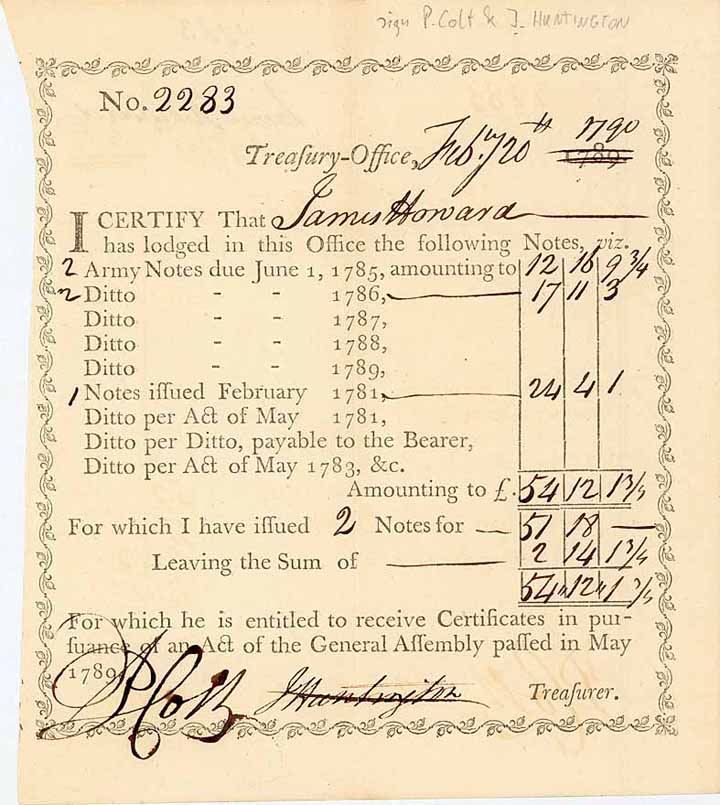 sign P. Colt & J. HUNTINGTON
No. 2283
Treaſury-Office, Feby 20th 1790 1789.
I CERTIFY That James Howard
has lodged in this Office the following Notes, viz.
2 Army Notes due June 1, 1785, amounting to 12 16 9 3/4
2 Ditto - - 1786, 17 11 3
Ditto - - 1787,
Ditto - - 1788,
Ditto - - 1789,
1 Notes iſſued February 1781, 24 4 1
Ditto per Act of May 1781,
Ditto per Ditto, payable to the Bearer,
Ditto per Act of May 1783, &c.
Amounting to £. 54 12 1 3/4
For which I have iſſued 2 Notes for 51 18 —
Leaving the Sum of 2 14 1 3/4
54 " 12 " 1 3/4
For which he is entitled to receive Certificates in pur-
ſuance of an Act of the General Aſſembly paſſed in May
1789
P Colt J Huntington Treaſurer.